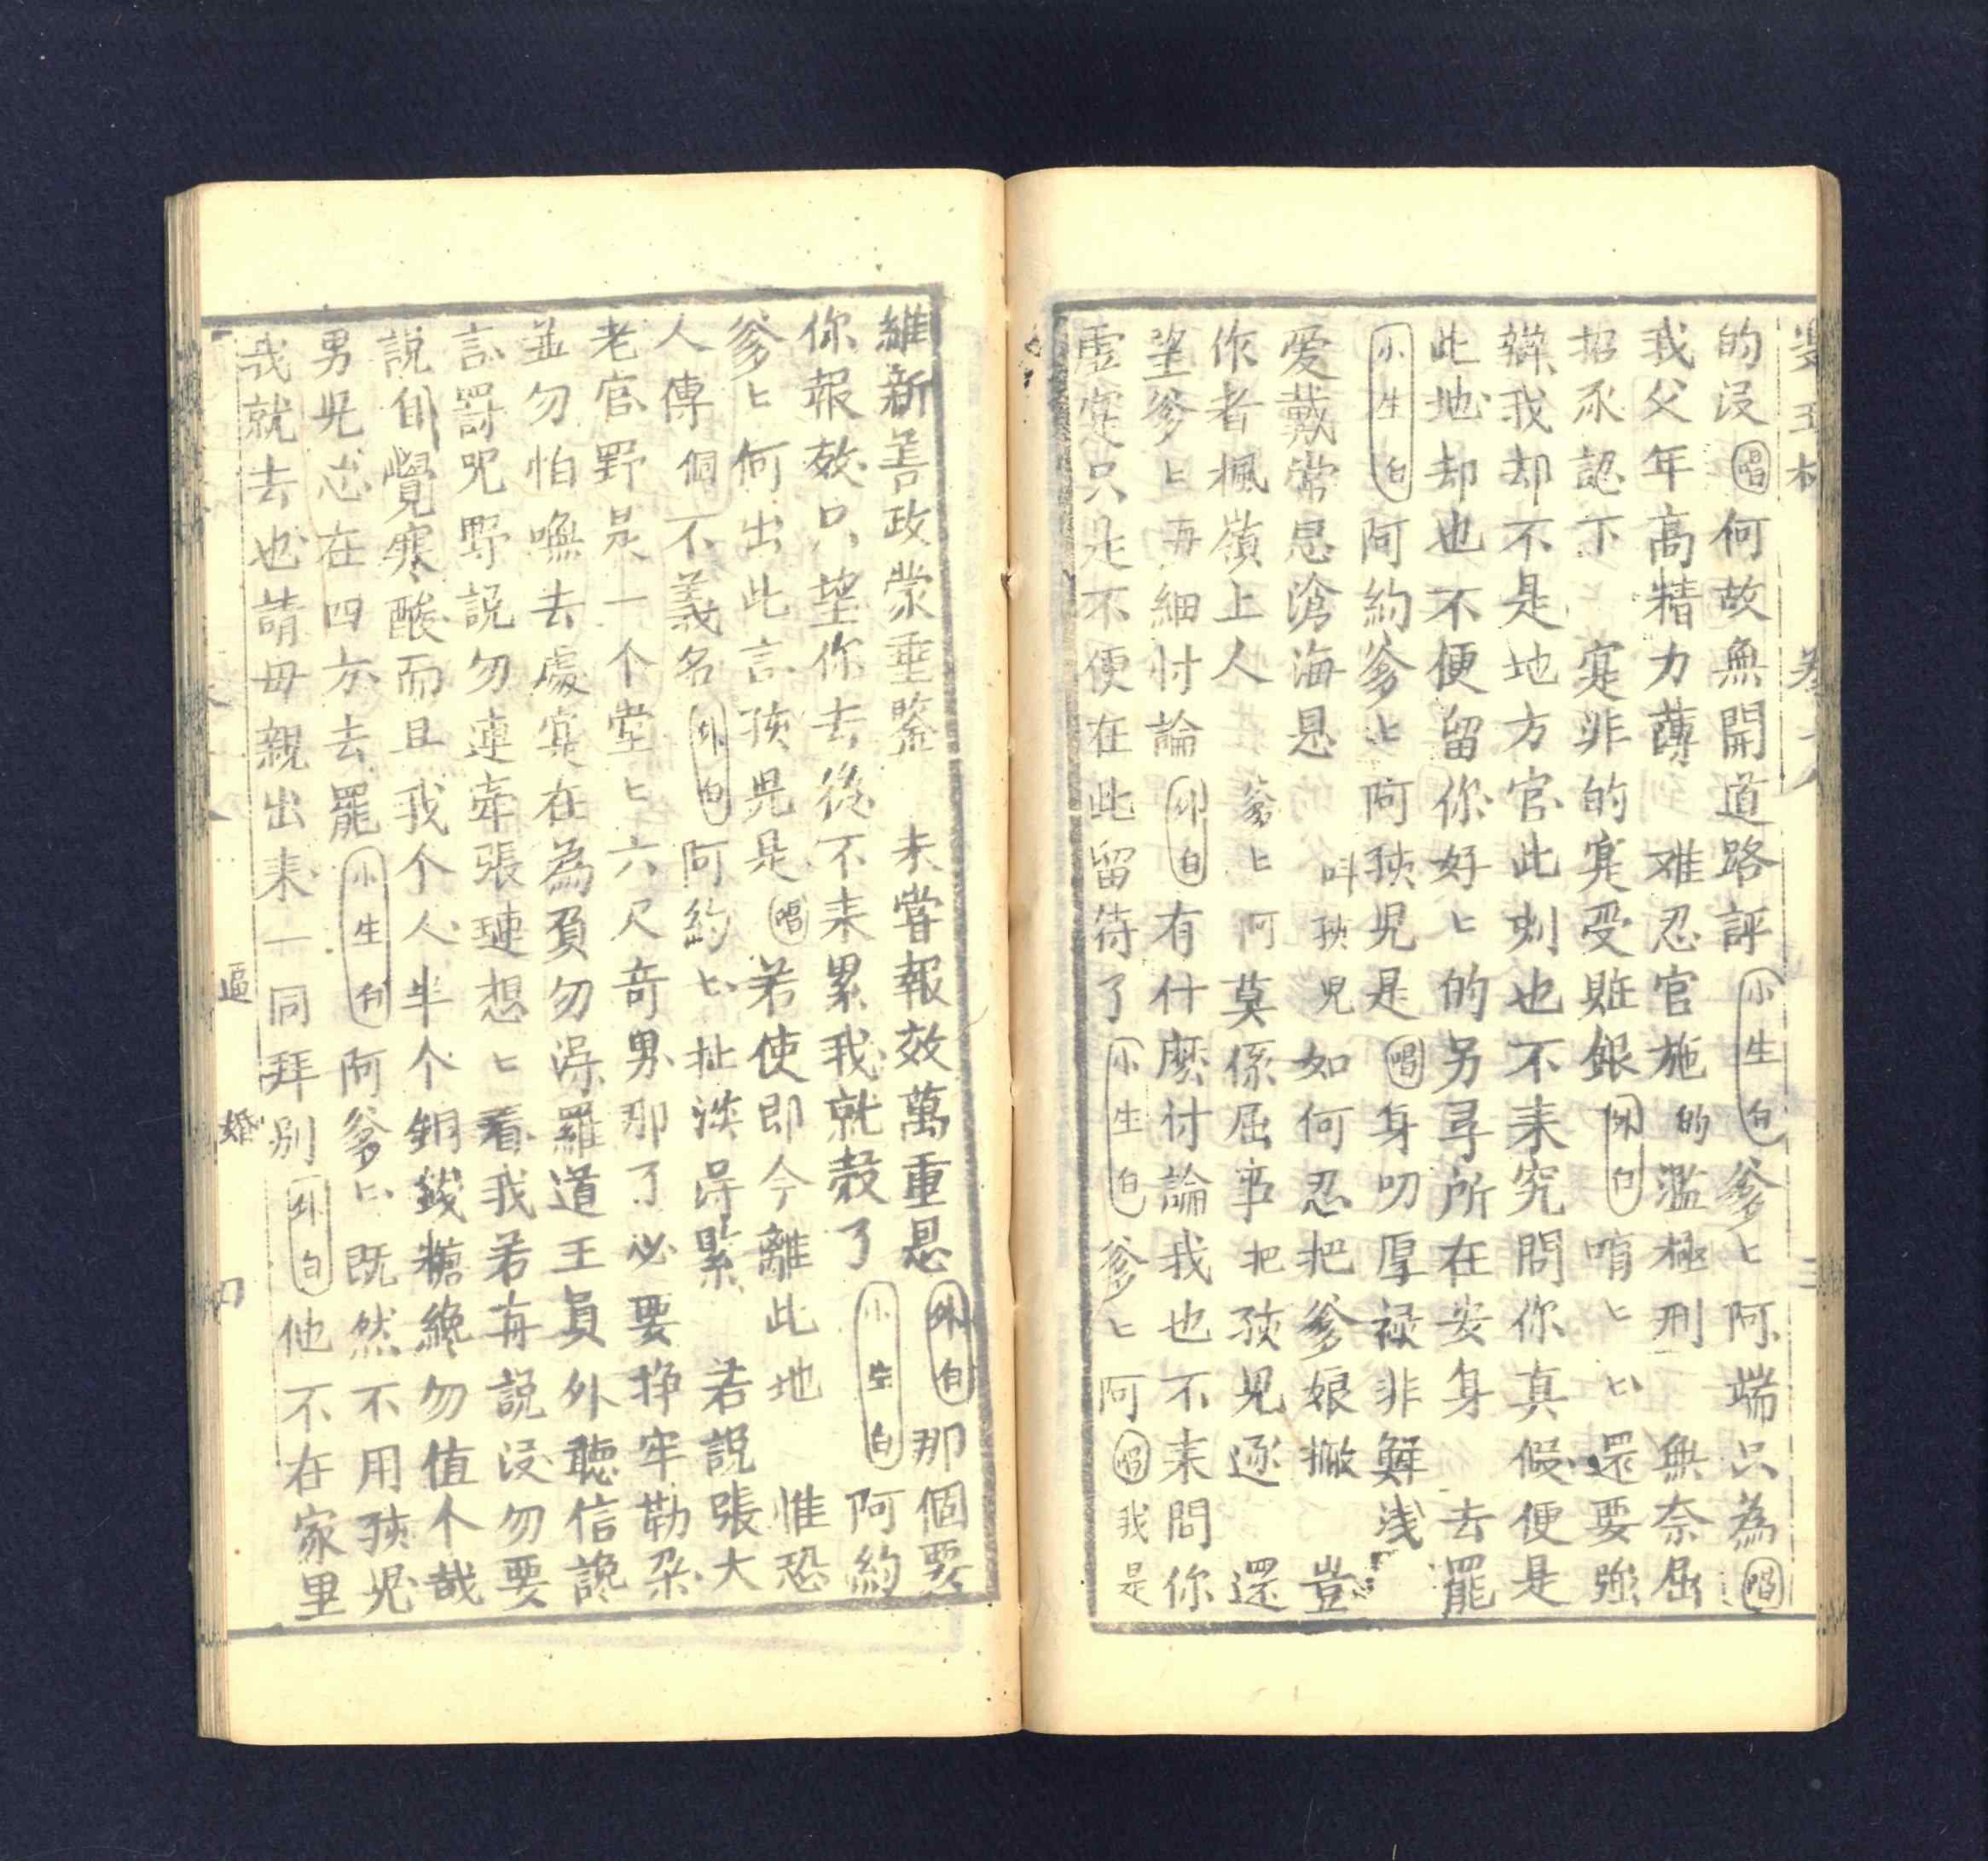 的沒唱何故無開道路評小生白爹匕阿端只為唱
我父年高精力薄　难忍官施的濫極刑　無奈屈
招承認下匕　寔非的寔受賍銀外白唷匕匕還要強
辯我却不是地方官此刻也不来究問你真假便是
此地却也不便留你好匕的另尋所在安身　去罷
小生白阿約爹匕阿孩兒是唱身叨厚禄非鮮浅
愛戴常思滄海恩　叫孩兒如何忍把爹娘撇　豈
作者楓嶺上人　爹匕阿莫係屈事把孩兒逐　還
望爹匕再細忖論外白有什麼忖論我也不来問你
虛寔只是不便在此留待了小生白爹匕阿唱我是
維新善政蒙垂鑒　未嘗報效萬重恩外白那個要
你報效只望你去後不来累我就彀了小生白阿約
爹匕何出此言孩兒是唱若使即今離此地　惟恐
人傳個不義名外白阿約匕扯淡淂緊　若說張大
老官野是一个堂匕六尺奇男那了必要挣牢勒朶
並勿怕嘸去處寔在為頁勿淂羅道王員外聽信讒
言罰咒野說勿連牽張璉想匕看我若再説沒勿要
説自覺寒酸而且我个人半个銅錢糖總勿值个哉
男兒志在四方去罷小生白阿爹匕既然不用孩兒
我就去也請母親出来一同拜别外白他不在家里
逼婚